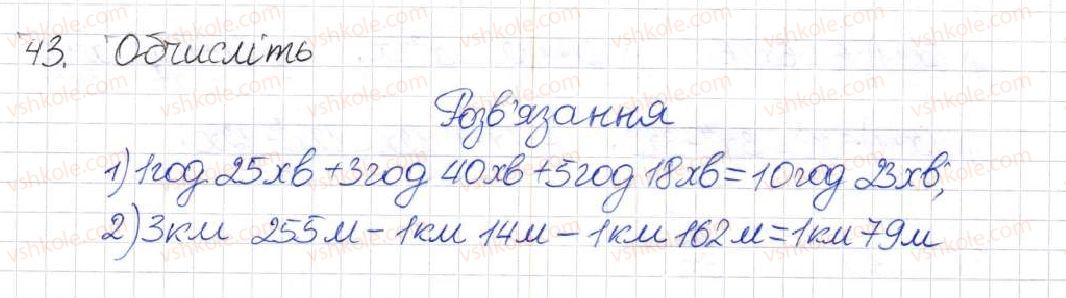 43. Обчисліть
Розв'язання
1) 1год 25хв + 3год 40хв + 5год 18хв = 10год 23хв;
2) 3км 255м - 1км 14м - 1км 162м = 1км 79м
vshkole.com